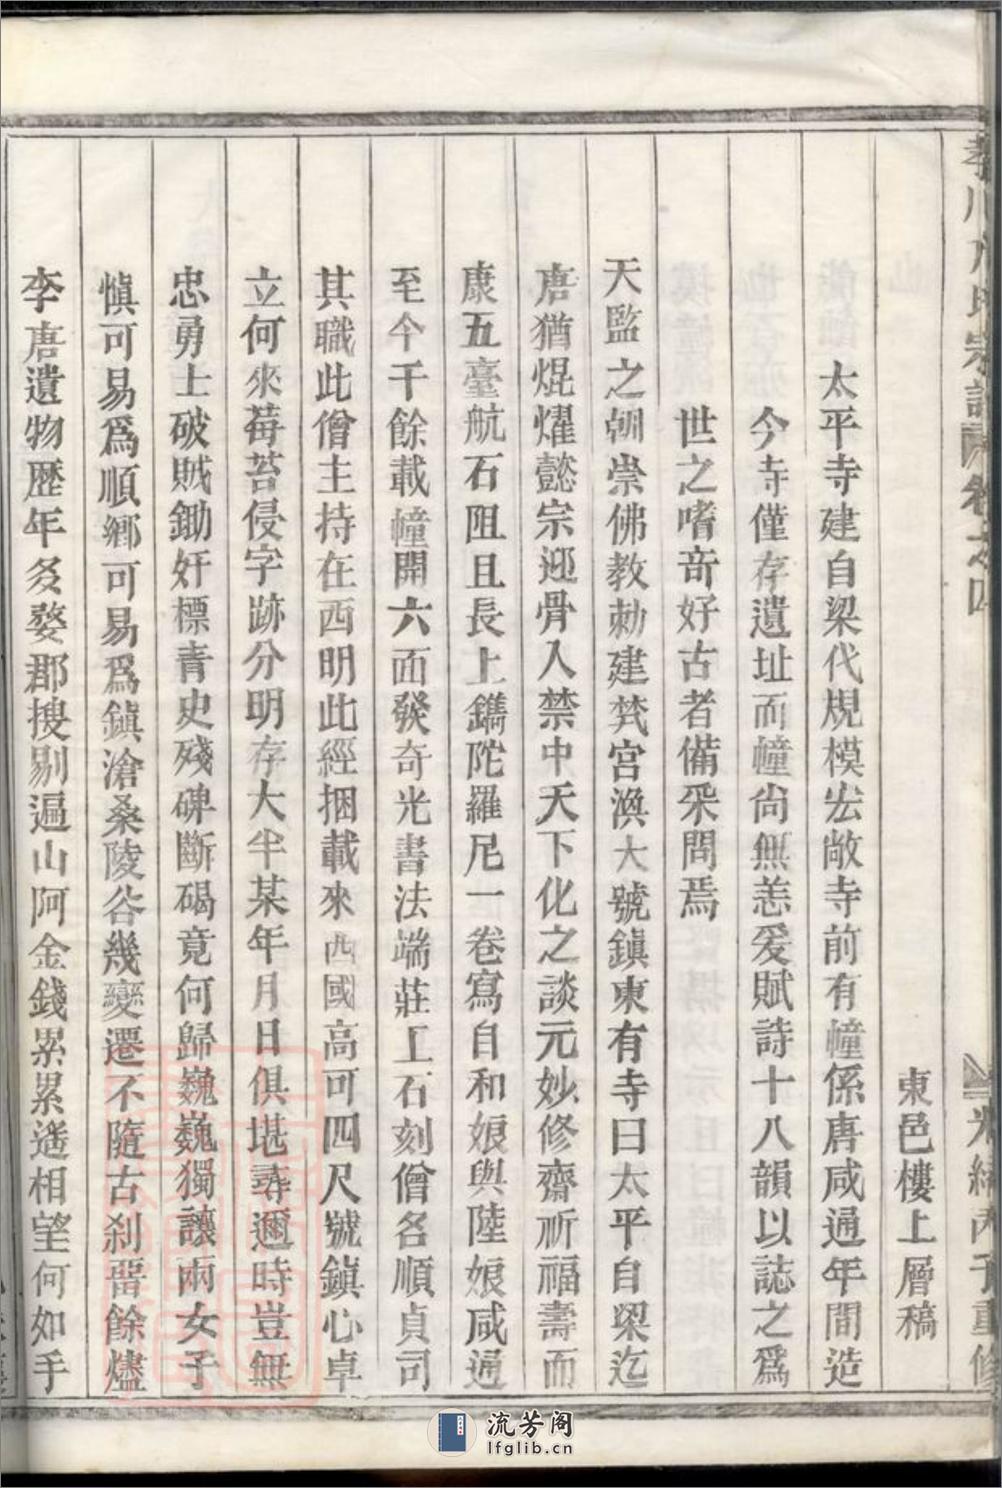 宗譜 卷之四 光緒丙子重修
東邑樓上層稿
太平寺建自梁代規模宏敞寺前有幢係唐咸通年間造
今寺僅存遺址而幢尙無恙爰賦詩十八韻以誌之爲
世之嗜奇好古者備采問焉
天監之朝崇佛教勅建梵宮渙大號鎭東有寺曰太平自梁迄
唐猶焜燿懿宗迎骨入禁中天下化之談元妙修齋祈福壽而
康五臺航石阻且長上鐫陀羅尼一卷寫自和娘與陸娘咸通
至今千餘載幢開六面發奇光書法端莊工石刻僧名順貞司
其職此僧主持在西明此經捆載來西國高可四尺號鎭心卓
立何來莓苔侵字跡分明存大半某年月日俱堪尋邇時豈無
忠勇士破賊鋤奸標靑史殘碑斷碣竟何歸巍巍獨讓兩女子
愼可易爲順鄉可易爲鎭滄桑陵谷幾變遷不隨古刹畱餘燼
李唐遺物歷年多婺郡搜剔遍山阿金錢累累遙相望何如手
流芳阁
lfglib.cn